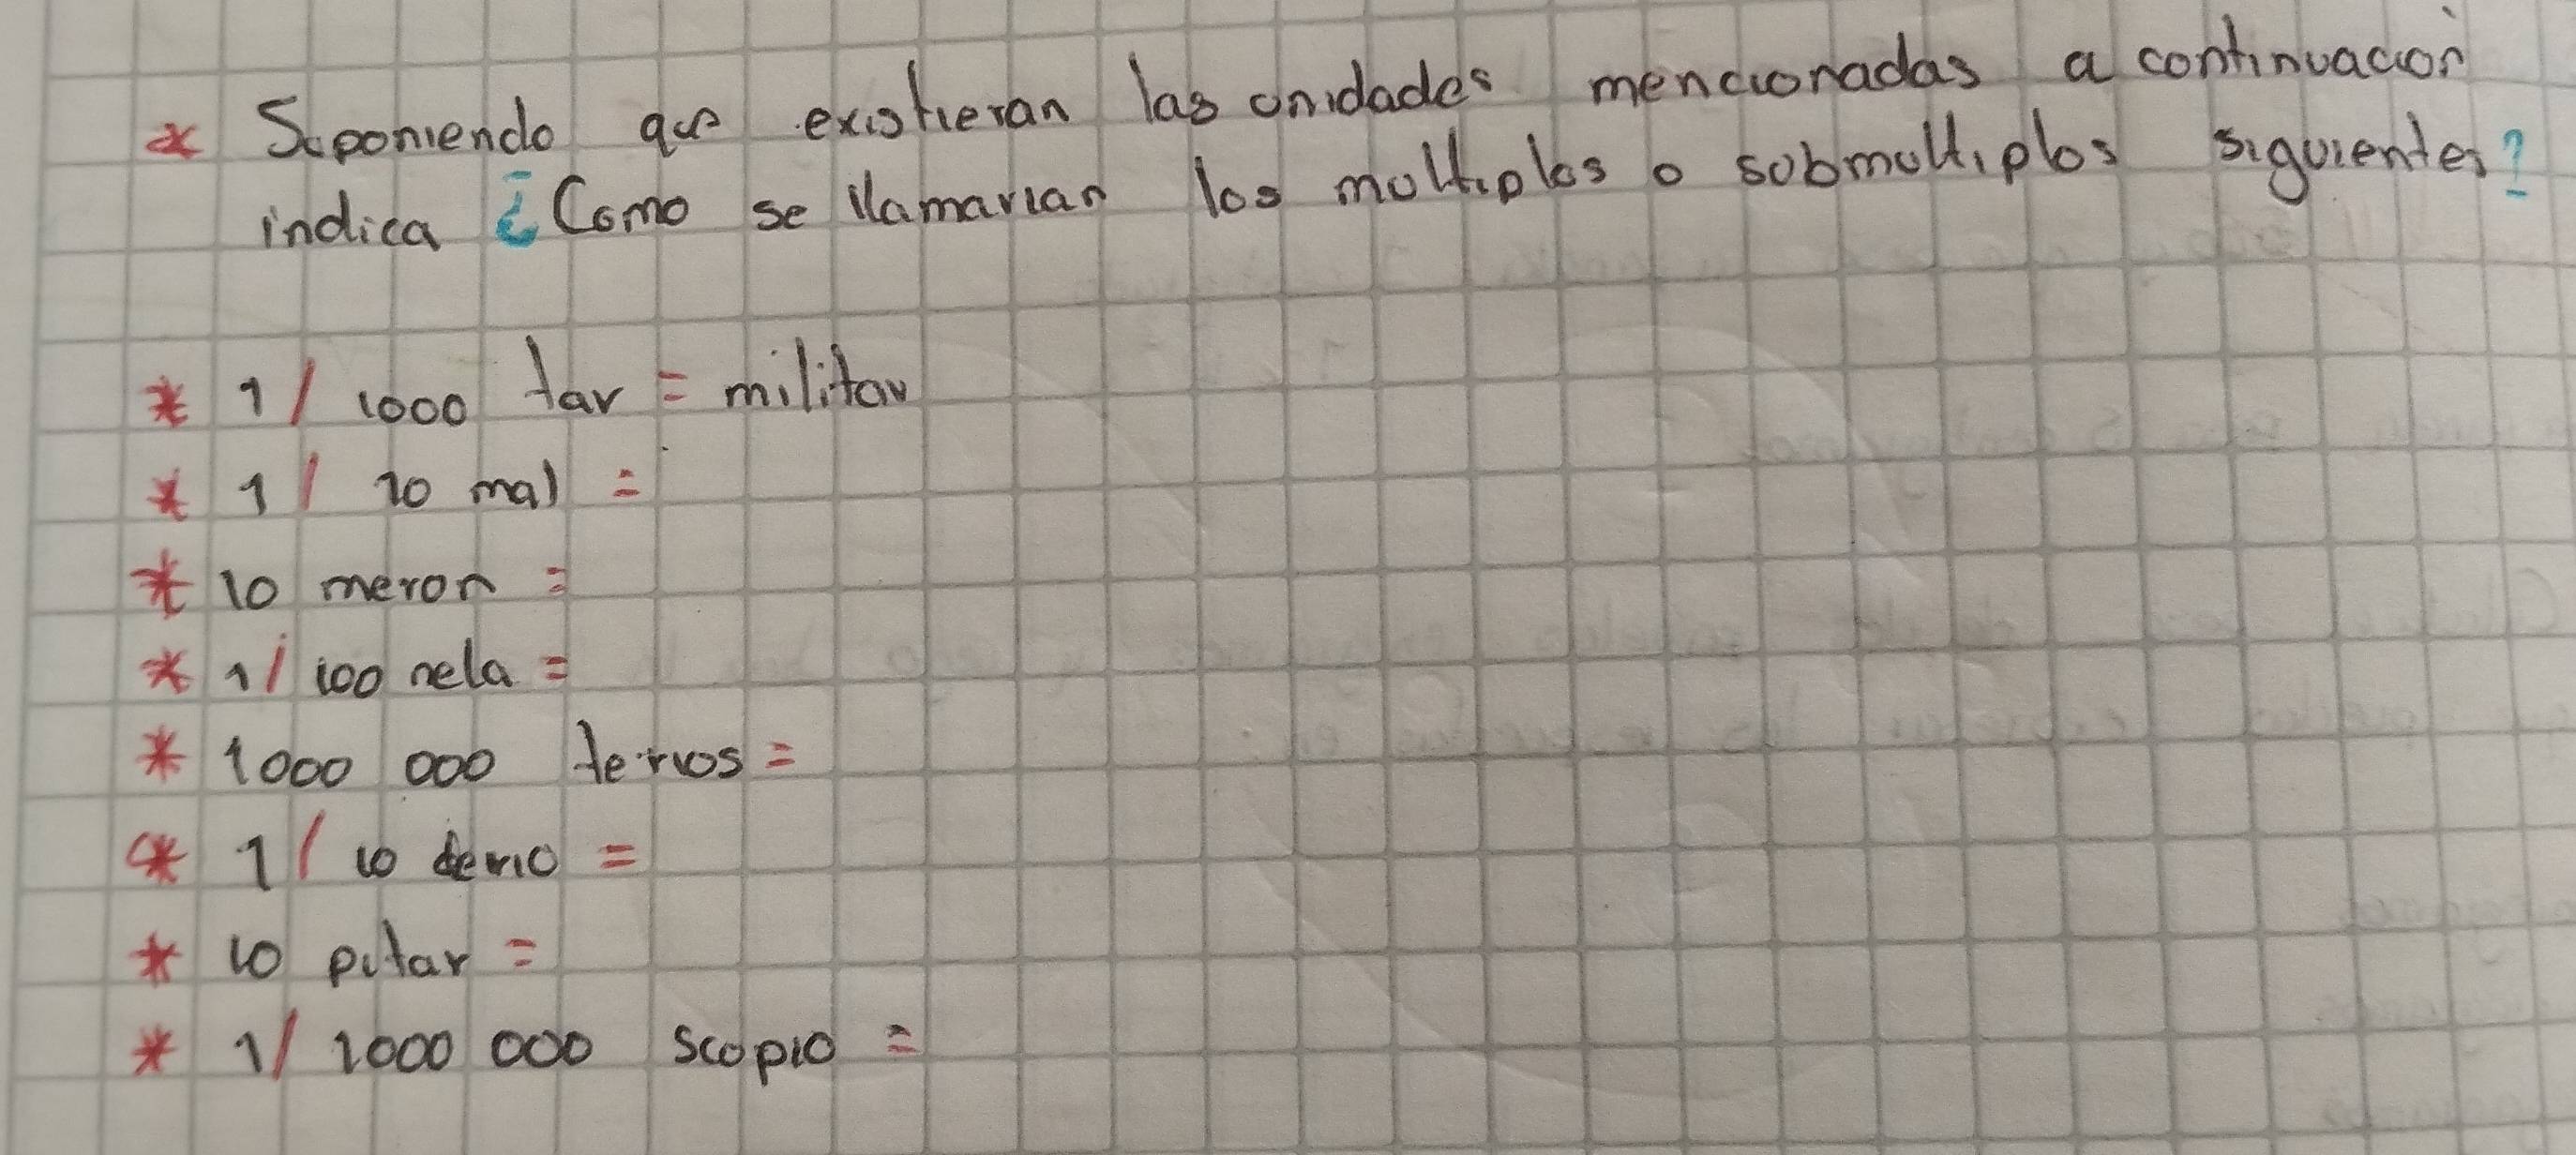 * Suponiendo que existieran las unidades mencionadas a continuacion
indica ¿Como se llamarian los multiplos o submultiplos siguientes?
* 1/1000 tar = militar
* 1/10 mal =
* 10 meron =
* 1/100 nela =
* 1000 000 terios =
* 1/10 derio =
* 10 pitar =
* 1/1000 000 scopio =